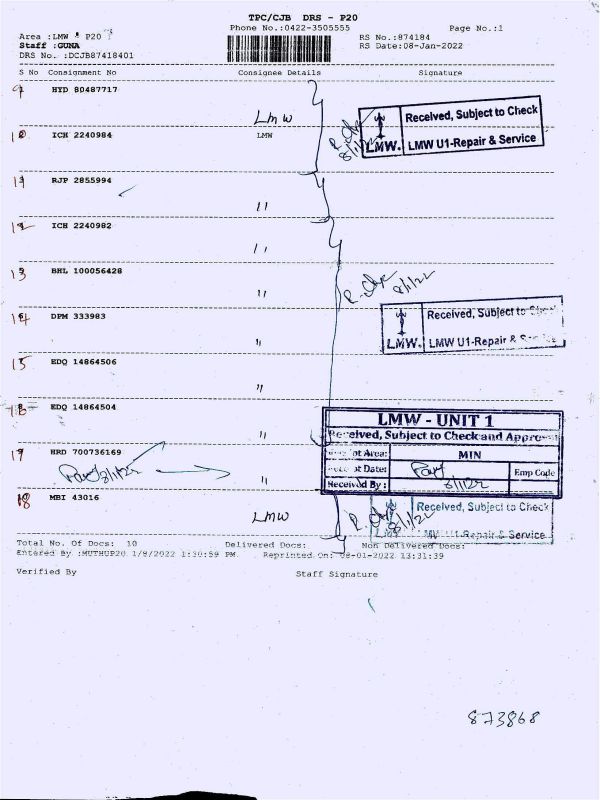 TPC/CJB DRS - P20
Phone No.:0422-3505555 Page No.:1
Area :LMW P20 RS No.:874184
Staff :GUNA RS Date:08-Jan-2022
DRS No. :DCJB87418401
S No Consignment No Consignee Details Signature
9 HYD 80487717
LMW
Received, Subject to Check
LMW. LMW U1-Repair & Service
8/1/22
10 ICH 2240984 LMW
11 RJP 2855994
"
12 ICH 2240982
"
13 BHL 100056428
8/1/22
"
14 DPM 333983
Received, Subject to Check
LMW. LMW U1-Repair &
"
15 EDQ 14864506
"
16 EDQ 14864504
LMW - UNIT 1
Received, Subject to Check and Approval
"
17 HRD 700736169
Receipt Area: MIN
Receipt Date: Emp Code
8/1/22
"
Received By : 8/1/22
18 MBI 43016
Received, Subject to Check
LMW
8/1/22
LMW U1-Repair & Service
Total No. Of Docs: 10 Delivered Docs: Non Delivered Docs:
Entered By :MUTHUP20 1/8/2022 1:30:59 PM Reprinted On: 08-01-2022 13:31:39
Verified By Staff Signature
873868